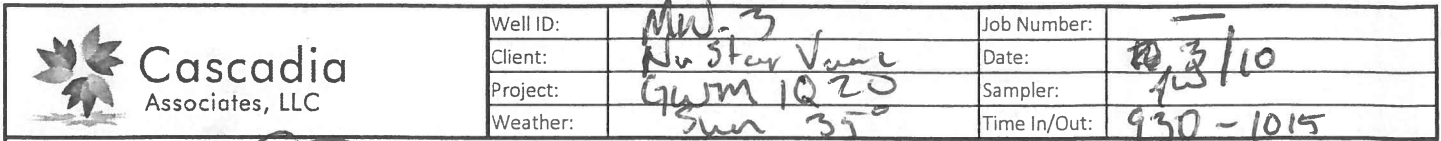 Cascadia
Associates, LLC
Well ID: MW-3 Job Number: —
Client: NuStar Vanc Date: 3/10
Project: GWM 1Q20 Sampler:
Weather: Sun 35° Time In/Out: 930 - 1015